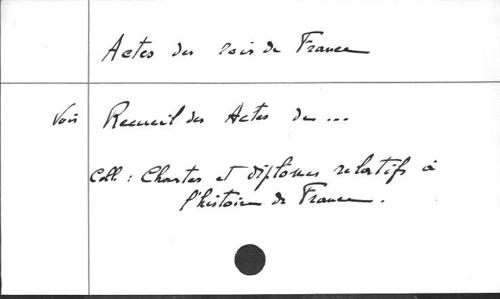 Actes des rois de France
Voir Recueil des Actes des ...
Coll : Chartes et diplomes relatifs à
l'histoire de France.